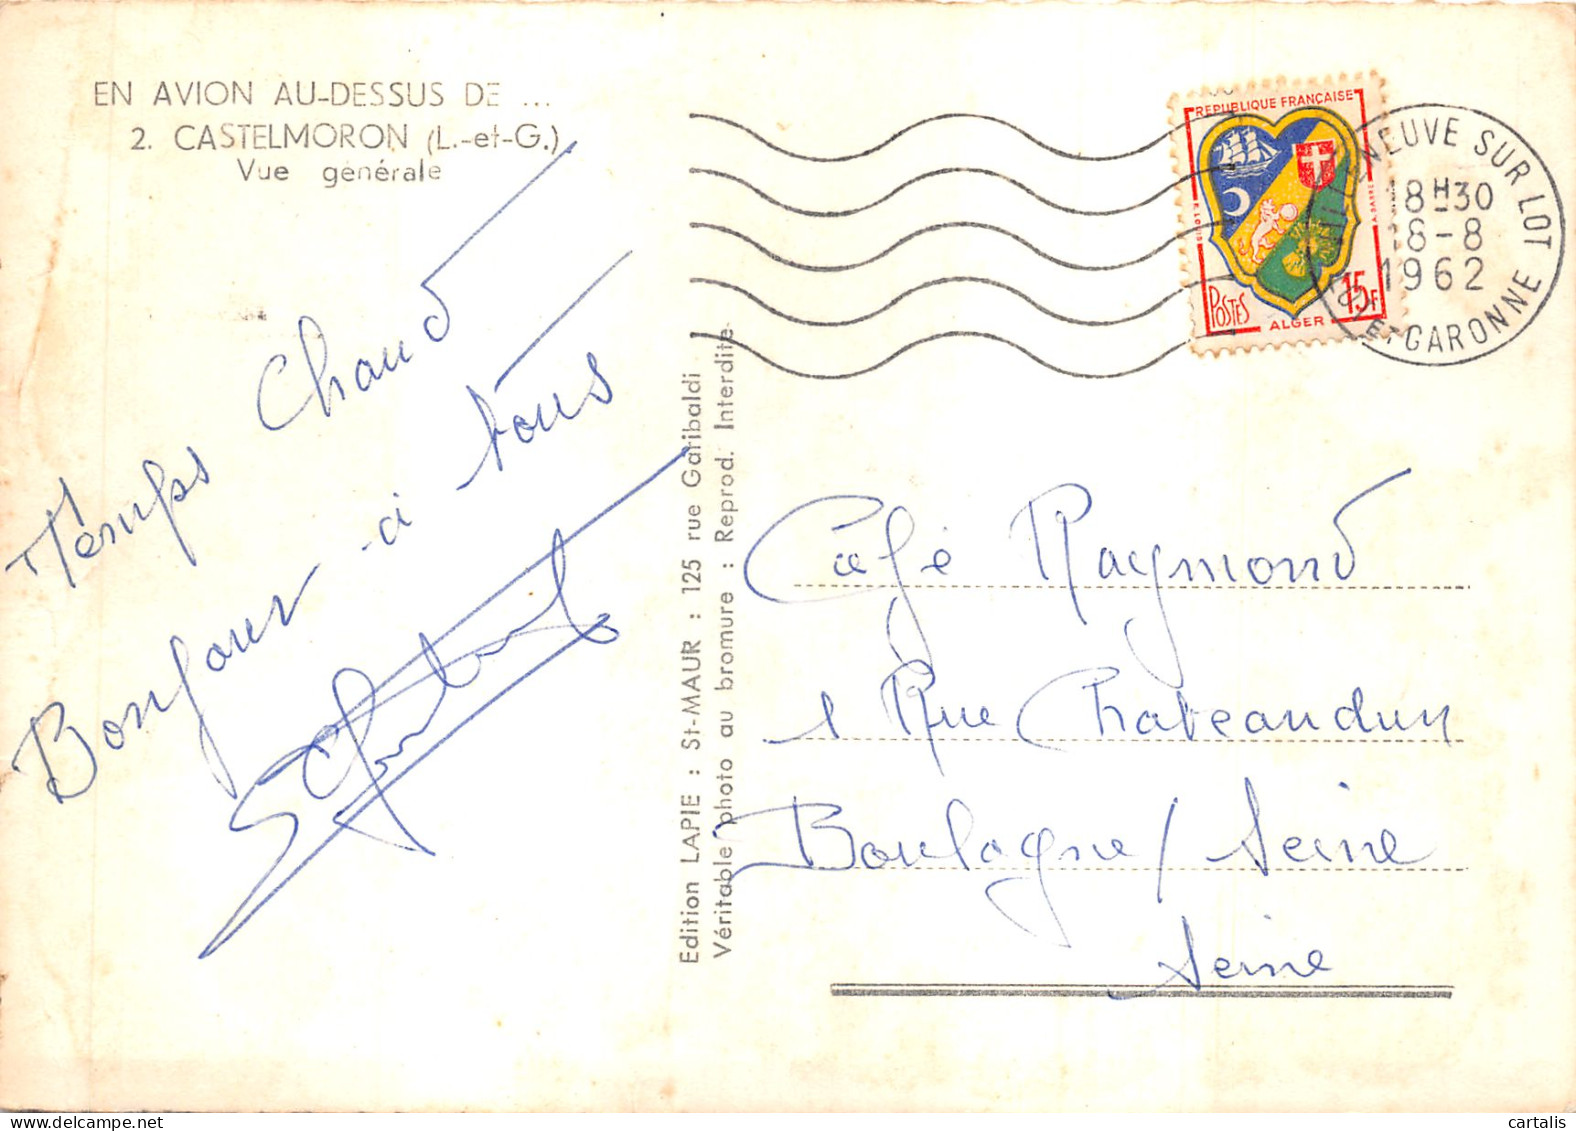 EN AVION AU-DESSUS DE ...
2. CASTELMORON (L.-et-G.)
Vue générale
Temps Chaud
Bonjour a tous
Edition LAPIE : St-MAUR : 125 rue Garibaldi
Véritable photo au bromure : Reprod. Interdite
REPUBLIQUE FRANÇAISE
POSTES
ALGER
15F
NEUVE SUR LOT
ET GARONNE
18H30
1962
Café Raymond
1 Rue Chateaudun
Boulogne / Seine
Seine
cartalis